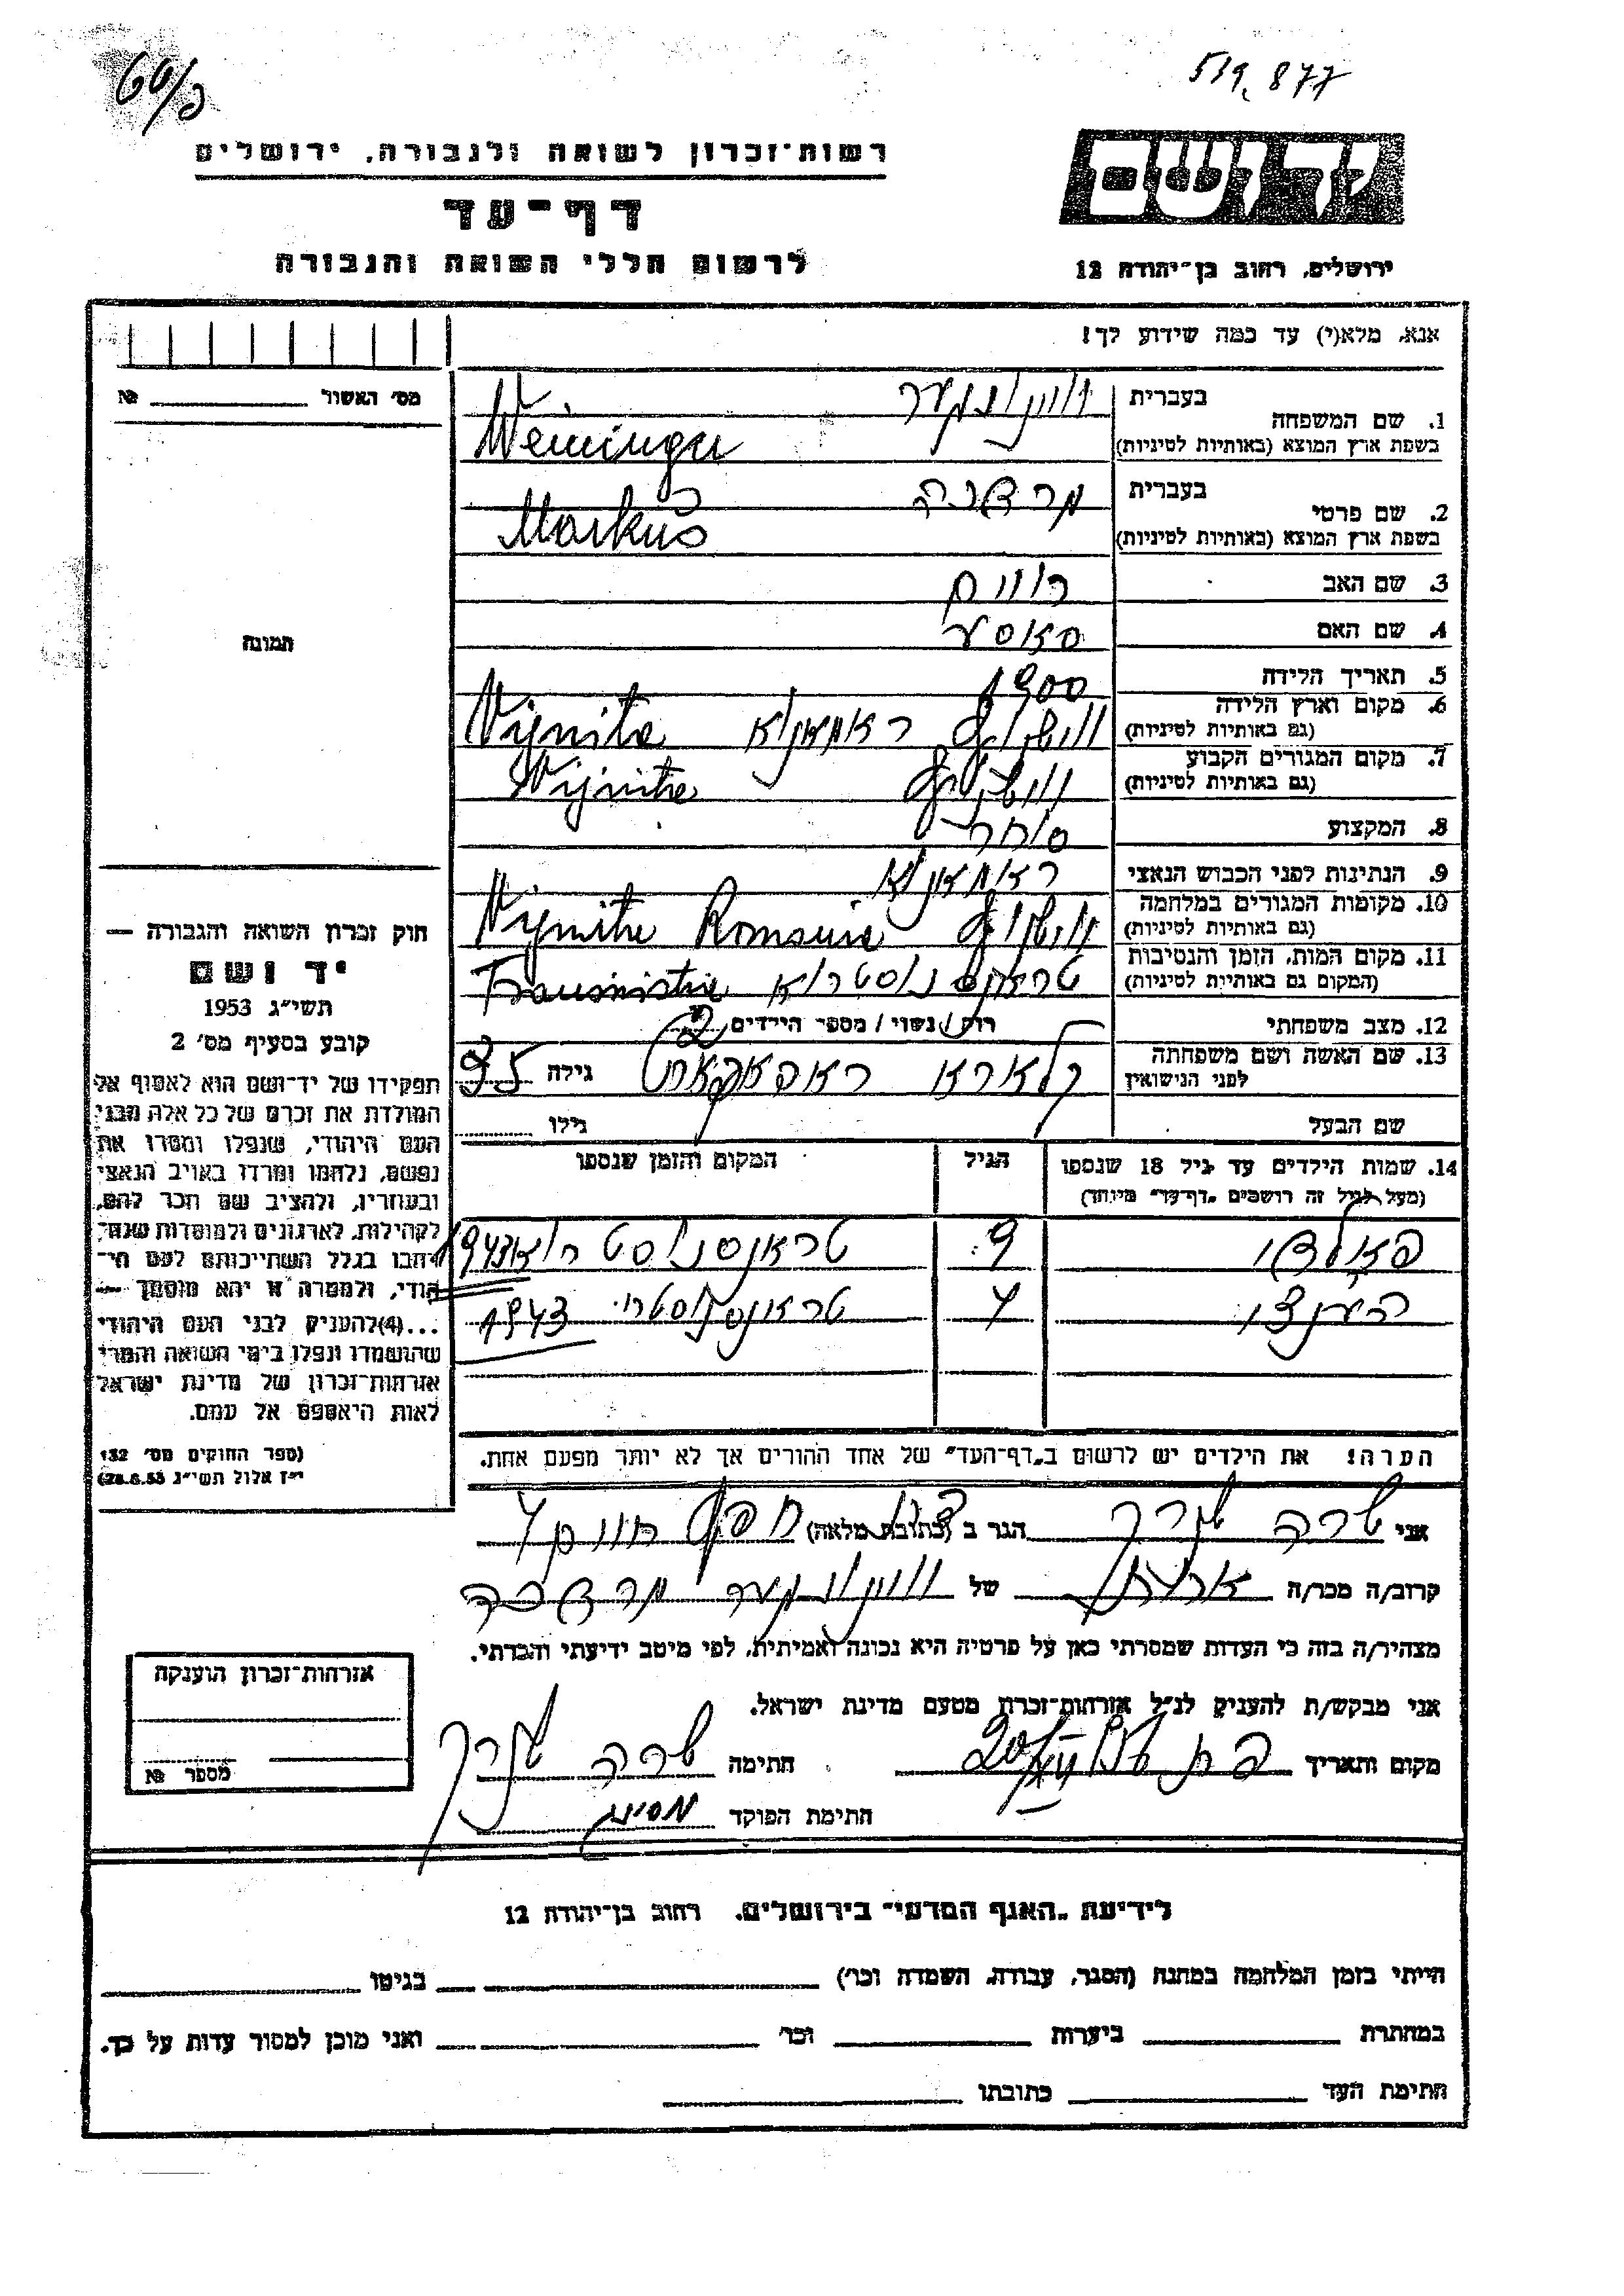 519,877
רשות־זכרון לשואה ולגבורה, ירושלים
דף־עד
לרשום חללי השואה והגבורה
ירושלים, רחוב בן־יהודה 12
אנא, מלא(י) עד כמה שידוע לך!
מס׳ האשור № 
תמונה
1. שם המשפחה בעברית
בשפת ארץ המוצא (באותיות לטיניות) Weininger
2. שם פרטי בעברית מרדכה
בשפת ארץ המוצא (באותיות לטיניות) Markus
3. שם האב חיים
4. שם האם
5. תאריך הלידה 1900
6. מקום וארץ הלידה (גם באותיות לטיניות) וויזניץ ראמאניא Vijnitz
7. מקום המגורים הקבוע (גם באותיות לטיניות) וויזניץ Vijnitz
8. המקצוע סוחר
9. הנתינות לפני הכבוש הנאצי ראמאניא
10. מקומות המגורים במלחמה (גם באותיות לטיניות) וויזניץ Vijnitz Romania
11. מקום המות, הזמן והנסיבות (המקום גם באותיות לטיניות) טראנסניסטריא Transnistrie
12. מצב משפחתי רווק / נשוי / מספר הילדים 2
13. שם האשה ושם משפחתה לפני הנישואין קלארא גילה 35
שם הבעל גילו
14. שמות הילדים עד גיל 18 שנספו (מעל לגיל זה רושמים „דף־עד״ מיוחד) הגיל המקום והזמן שנספו
פאולדי 9 טראנסניסטריא 1943
7 טראנסניסטרי 1943
הערה! את הילדים יש לרשום ב„דף־העד״ של אחד ההורים אך לא יותר מפעם אחת.
חוק זכרון השואה והגבורה —
יד ושם
תשי״ג 1953
קובע בסעיף מס׳ 2
תפקידו של יד־ושם הוא לאסוף אל
המולדת את זכרם של כל אלה מבני
העם היהודי, שנפלו ומסרו את
נפשם, נלחמו ומרדו באויב הנאצי
ובעוזריו, ולהציב שם וזכר להם,
לקהילות, לארגונים ולמוסדות שנח־
רבו בגלל השתייכותם לעם הי־
הודי, ולמטרה זו יהא מוסמך —
...(4)להעניק לבני העם היהודי
שהושמדו ונפלו בימי השואה והמרי
אזרחות־זכרון של מדינת ישראל
לאות היאספם אל עמם.
(ספר החוקים מס׳ 132
י״ז אלול תשי״ג 28.8.53)
אני שרה הגר ב (כתובת מלאה)
קרוב/ה מכר/ה של וויינינגער מרדכה
מצהיר/ה בזה כי העדות שמסרתי כאן על פרטיה היא נכונה ואמיתית, לפי מיטב ידיעתי והכרתי.
אני מבקש/ת להעניק לנ״ל אזרחות־זכרון מטעם מדינת ישראל.
מקום ותאריך בת חתימה שרה
חתימת הפוקד
אזרחות־זכרון הוענקה
מספר №
לידיעת „האגף המדעי״ בירושלים, רחוב בן־יהודה 12
הייתי בזמן המלחמה במחנה (הסגר, עבודה, השמדה וכו׳) בגיטו
במחתרת ביערות וכו׳ ואני מוכן למסור עדות על כך.
חתימת העד כתובתו